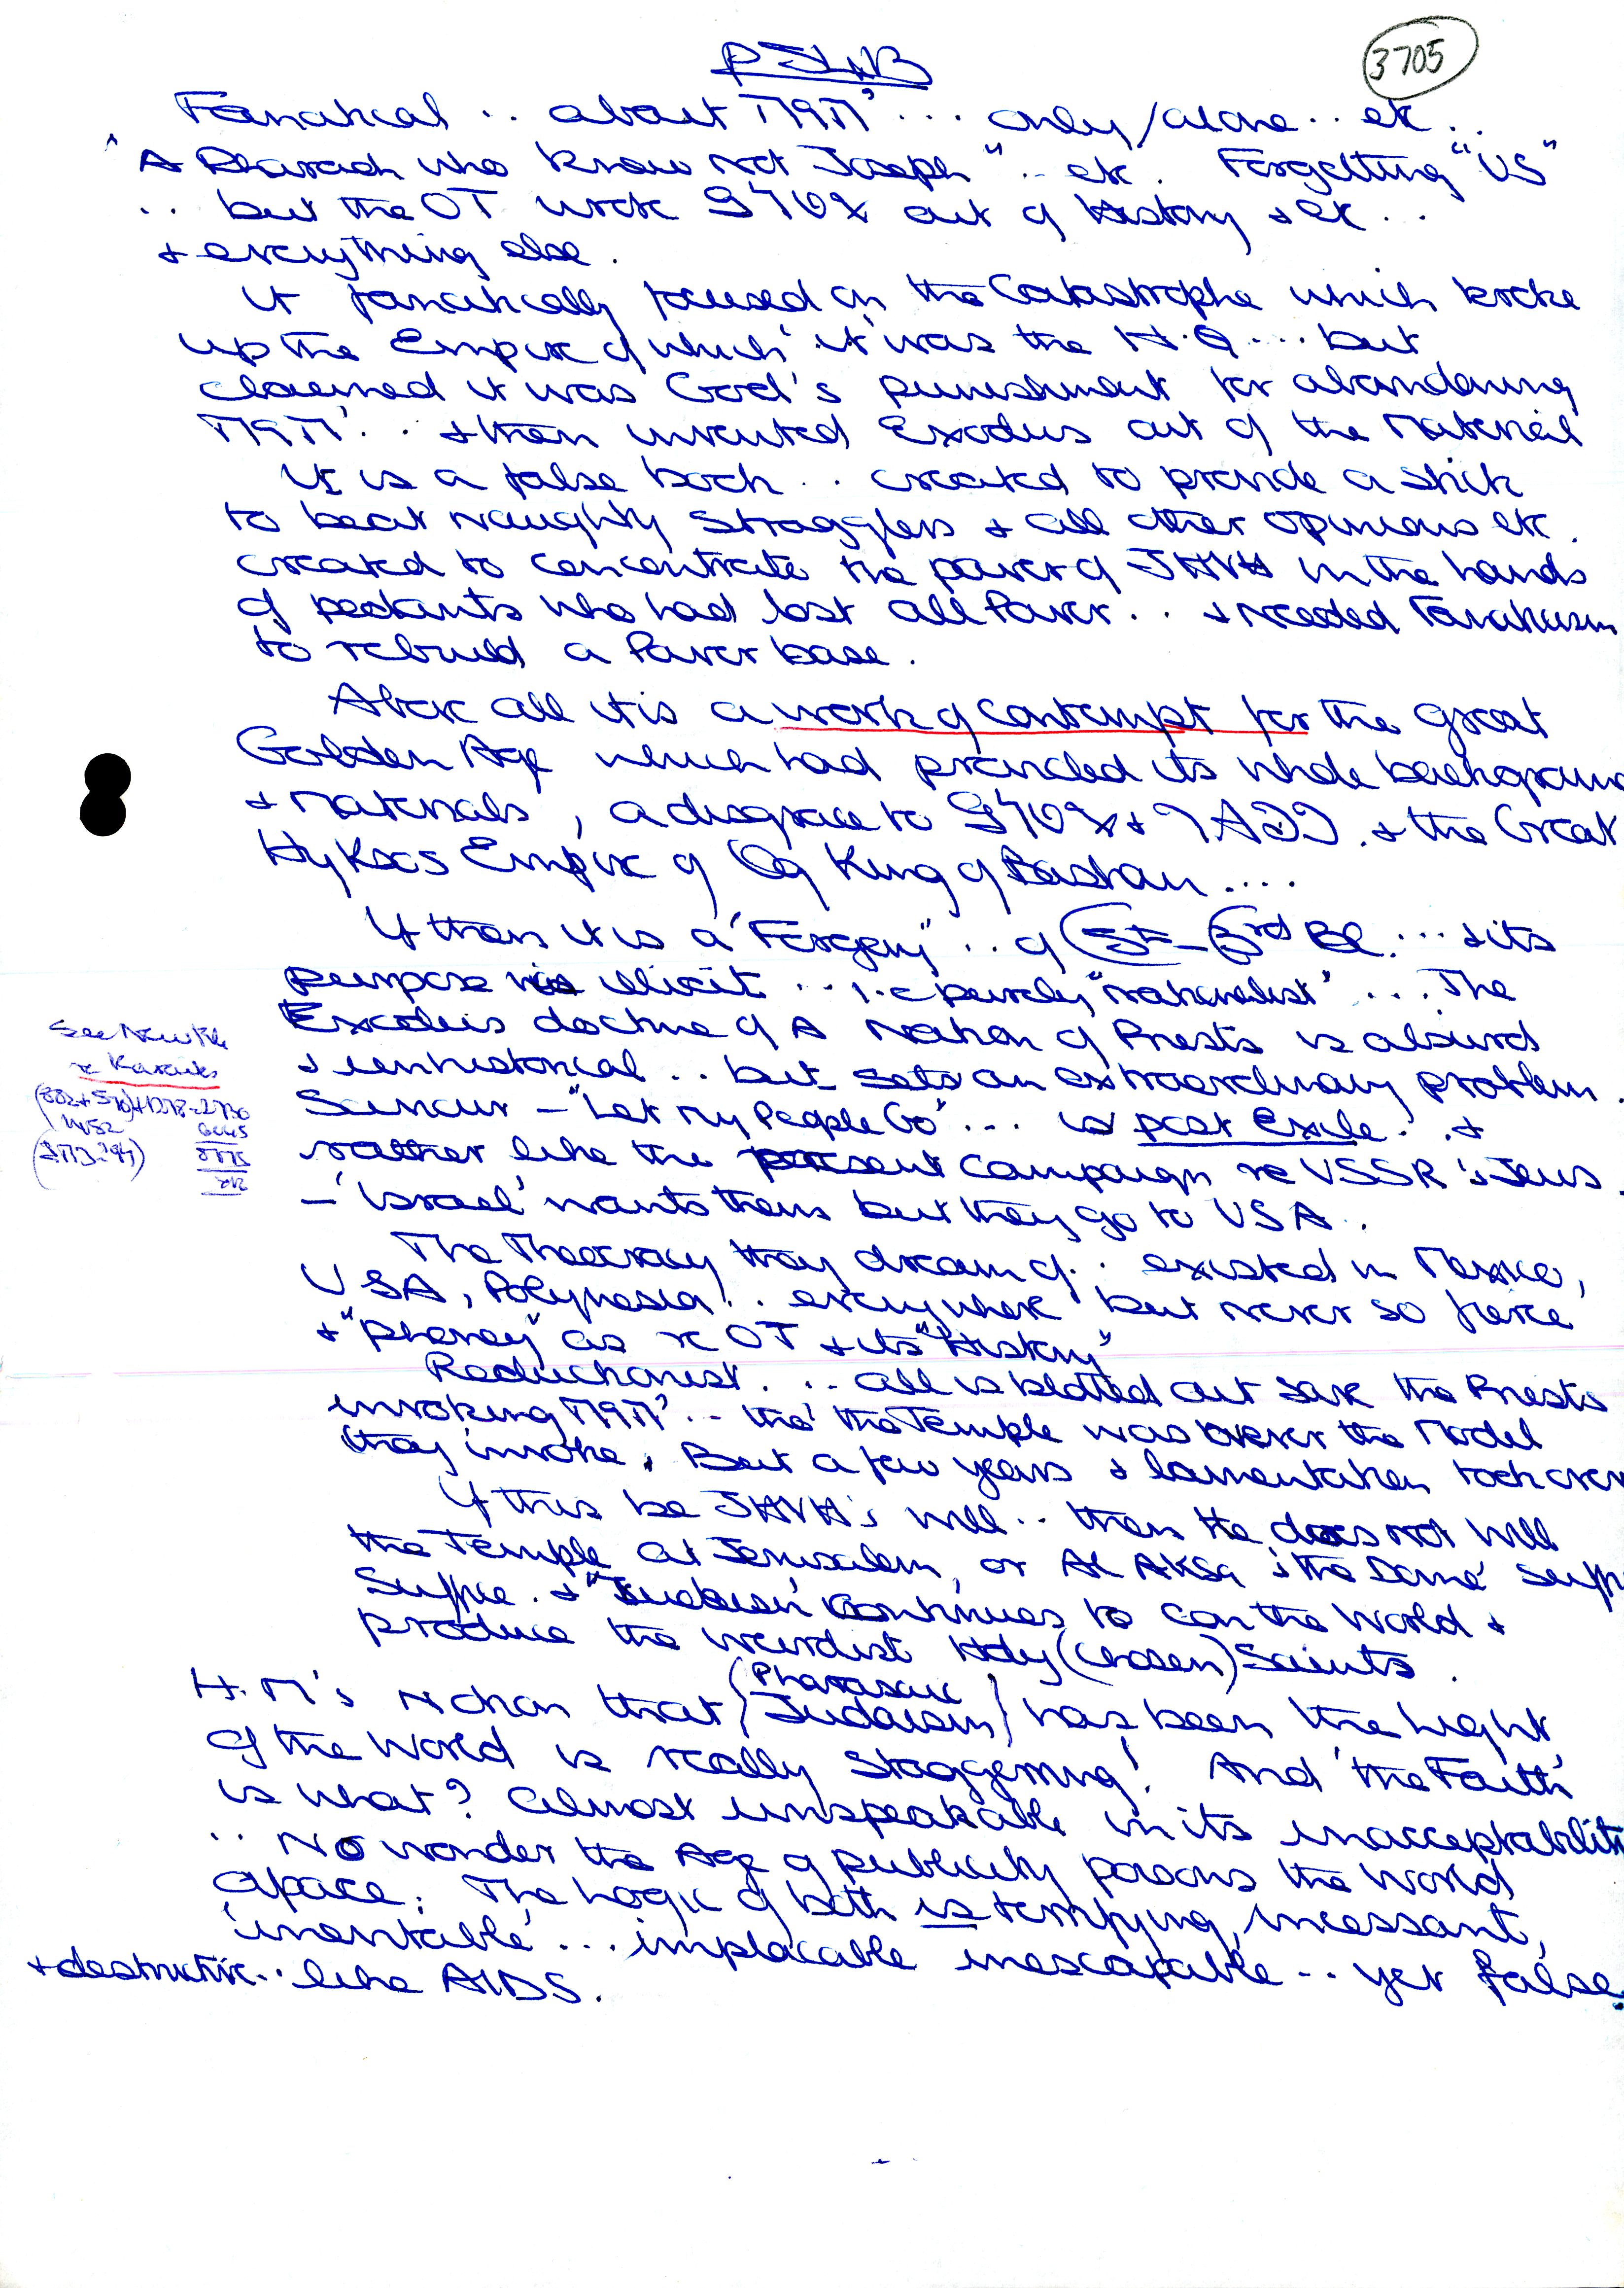 3705
Fanatical .. about יהוה ... only/alone .. etc ..
"A Pharaoh who knew not Joseph" .. etc. Forgetting "US"
.. but the OT wrote out of History + etc ...
+ everything else.
It fanatically focused on the Catastrophe which broke
up the Empire of which 'it' was the H.Q ... but
claimed it was God's punishment for abandoning
יהוה .. + then invented Exodus out of the Material
It is a false book .. created to provide a stick
to beat naughty stragglers + all other opinions etc.
created to concentrate the power of JHVH in the hands
of pedants who had lost all Power .. + needed Fanaticism
to rebuild a Power base.
Above all it is a work of contempt for the great
Golden Age which had provided its whole background
+ Materials, a disgrace to + the Great
Hyksos Empire of Og King of Bashan ....
If then it is a "Forgery" .. of 5th - 3rd BC. ... + its
purpose is illicit ... i.e purely "nationalist" ... The
Exodus doctrine of A Nation of Priests is absurd
+ unhistorical .. but sets an extraordinary problem.
- "Let My People Go" ... is post Exile. . +
rather like the present campaign re USSR's Jews.
- 'Israel' wants them but they go to USA ..
See New
re Karaites
The Theocracy they dream of .. existed in Mexico,
USA, Polynesia .. everywhere but never so fierce
+ "phoney" as re OT + its "History"
Reductionist ... all is blotted out save the Priests
invoking יהוה .. tho' the Temple was never the Model
they invoke. But a few years + lamentation took over
If this be JHVH's will .. then He does not will
the Temple at Jerusalem, or Al Aksa + the Dome'
suffice. + "Judaism" continues to con the World +
produce the weirdest Holy (Chosen) Saints.
H.M's notion that (Pharasaic Judaism) has been the Light
of the World is really staggering! And 'the Faith'
is what? Almost unspeakable in its unacceptability
.. No wonder the Age of publicity poisons the World
apace. The Logic of both is terrifying, incessant,
'inevitable' ... implacable inescapable .. yet false
+ destructive .. like AIDS.